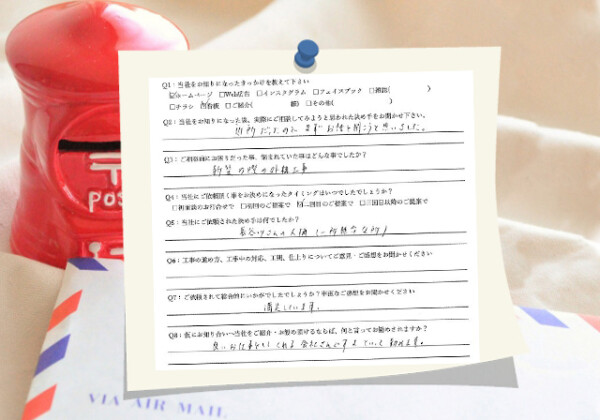 POS
Q1：当社をお知りになったきっかけを教えて下さい
☑ホームページ □Web広告 □インスタグラム □フェイスブック □雑誌( )
□チラシ ☑看板 □ご紹介( 様) □その他( )
Q2：当社をお知りになった後、実際にご相談してみようと思われた決め手をお聞かせ下さい。
近所だったので、まずお話を聞こうと思いました。
Q3：ご相談前にお困りだった事、悩まれていた事はどんな事でしたか？
新築の際の外構工事
Q4：当社にご依頼頂く事をお決めになったタイミングはいつでしたでしょうか？
□初来談のお打合せで □初回のご提案で ☑二回目のご提案で □三回目以降のご提案で
Q5：当社にご依頼された決め手は何でしたか？
長谷川さんの人柄(一所懸命な所)
Q6：工事の進め方、工事中の対応、工期、仕上りについてご意見・ご感想をお聞かせください
Q7：ご依頼されて総合的にいかがでしたでしょうか？率直なご感想をお聞かせください
満足しています。
Q8：仮にお知り合いへ当社をご紹介・お勧め頂けるならば、何と言ってお勧めされますか？
良いお仕事をしてくれる会社さんですよ といって勧めます。
VIA AIR MAIL